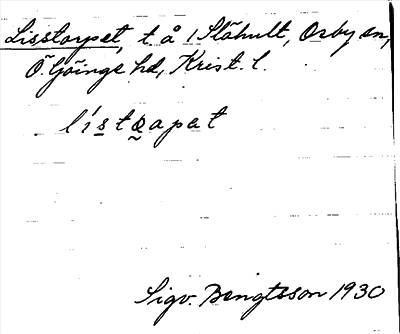 Lisstorpet, t å 1 Slähult, Osby sn,
Ö. Göinge hd, Krist. l.
lístapat
Sigv. Bengtsson 1930